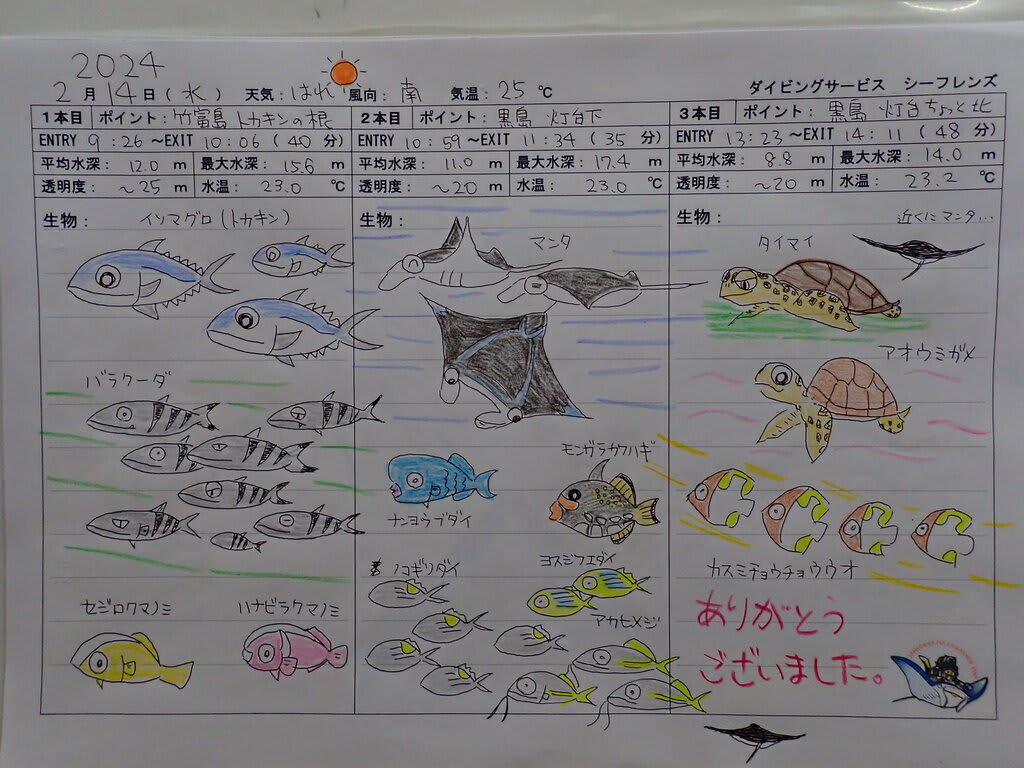 2024
2月14日(水) 天気：はれ 風向：南 気温：25℃ ダイビングサービス シーフレンズ
1本目 ポイント：竹富島 トカキンの根
ENTRY 9:26～EXIT 10:06(40分)
平均水深：12.0m 最大水深：15.6m
透明度：～25m 水温：23.0℃
生物：
イソマグロ(トカキン)
バラクーダ
セジロクマノミ ハナビラクマノミ
2本目 ポイント：黒島 灯台下
ENTRY 10:59～EXIT 11:34(35分)
平均水深：11.0m 最大水深：17.4m
透明度：～20m 水温：23.0℃
生物：
マンタ
モンガラカワハギ
ナンヨウブダイ
ノコギリダイ
ヨスジフエダイ
アカヒメジ
3本目 ポイント：黒島 灯台ちょっと北
ENTRY 13:23～EXIT 14:11(48分)
平均水深：8.8m 最大水深：14.0m
透明度：～20m 水温：23.2℃
生物：
近くにマンタ...
タイマイ
アオウミガメ
カスミチョウチョウウオ
ありがとう
ございました。